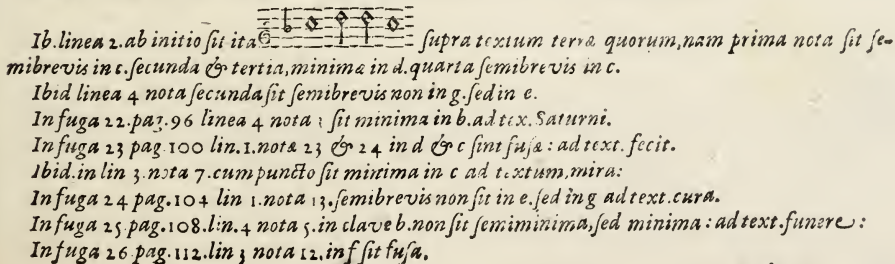 Ib. linea 2. ab initio sit ita supra textum terræ quorum, nam prima nota sit se-
mibrevis in c. secunda & tertia, minimæ in d. quarta semibrevis in c.
Ibid linea 4 nota secunda sit semibrevis non in g. sed in e.
In fuga 22. pag. 96 linea 4 nota 3 sit minima in b. ad tex. Saturni.
In fuga 23 pag. 100 lin. 1. notæ 23 & 24 in d & c sint fusæ : ad text. fecit.
Ibid. in lin 3. nota 7. cum puncto sit minima in c ad textum, mira:
In fuga 24 pag. 104 lin 1. nota 13. semibrevis non sit in e. sed in g ad text. cura.
In fuga 25 pag. 108. lin. 4 nota 5. in clave b. non sit semiminima, sed minima : ad text. funere :
In fuga 26 pag. 112. lin 3 nota 12. in f sit fusa.